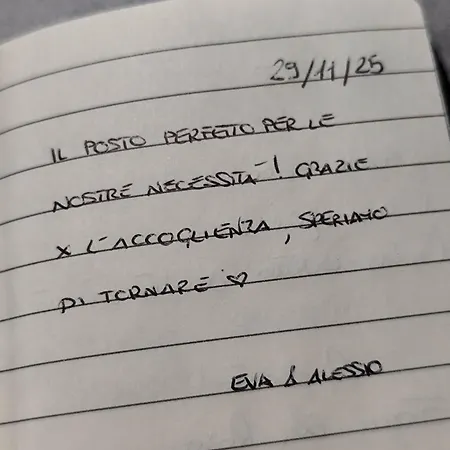 29/11/25
IL POSTO PERFETTO PER LE
NOSTRE NECESSITÀ! GRAZIE
X L'ACCOGLIENZA, SPERIAMO
DI TORNARE ♡
EVA & ALESSIO